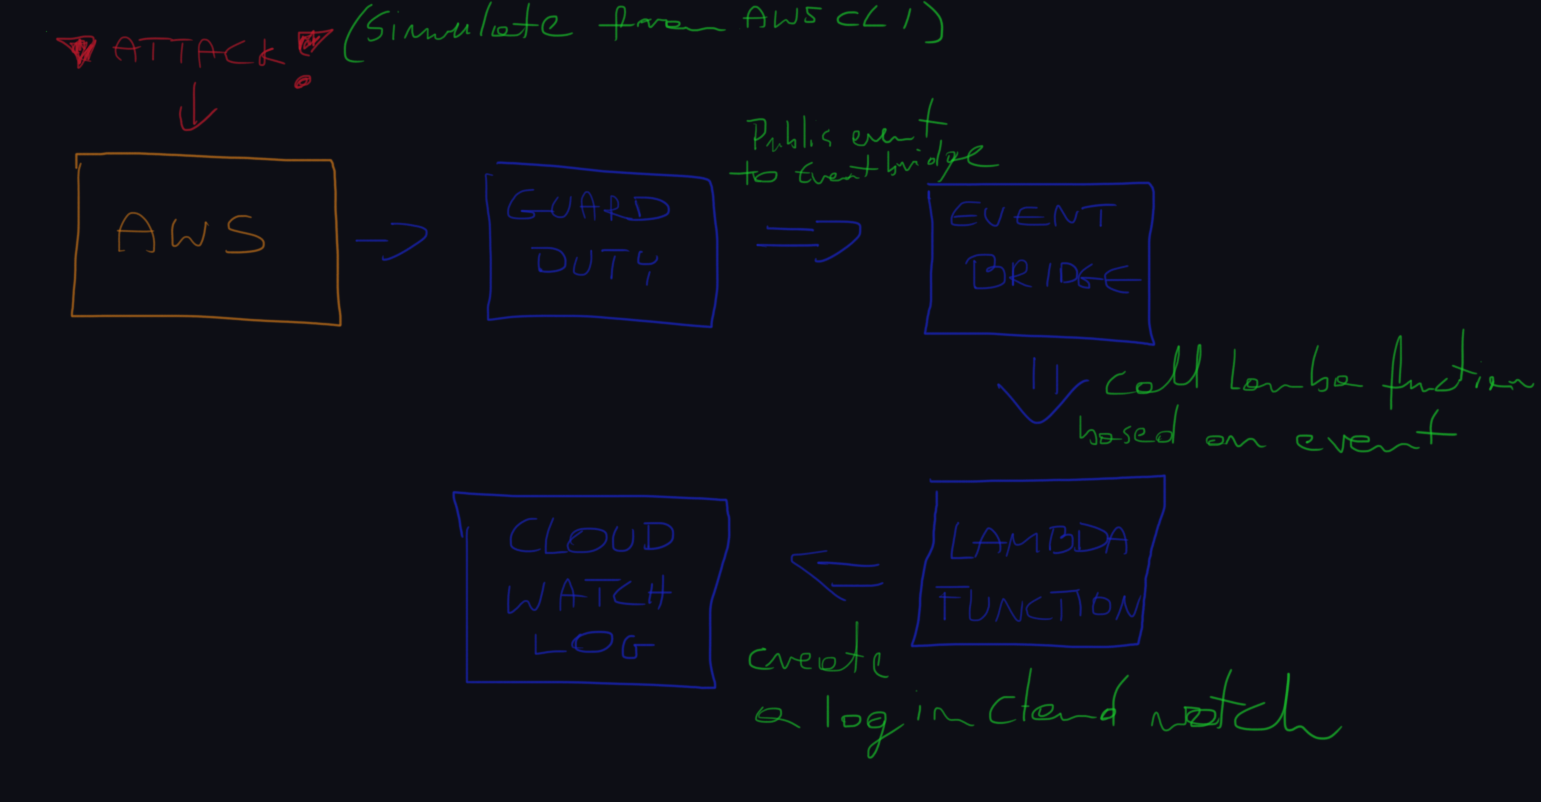 ATTACK
(Simulate from AWS CLI)
AWS
GUARD
DUTY
Public event
to Eventbridge
EVENT
BRIDGE
call Lambda function
based on event
LAMBDA
FUNCTION
create
a log in Cloud watch
CLOUD
WATCH
LOG